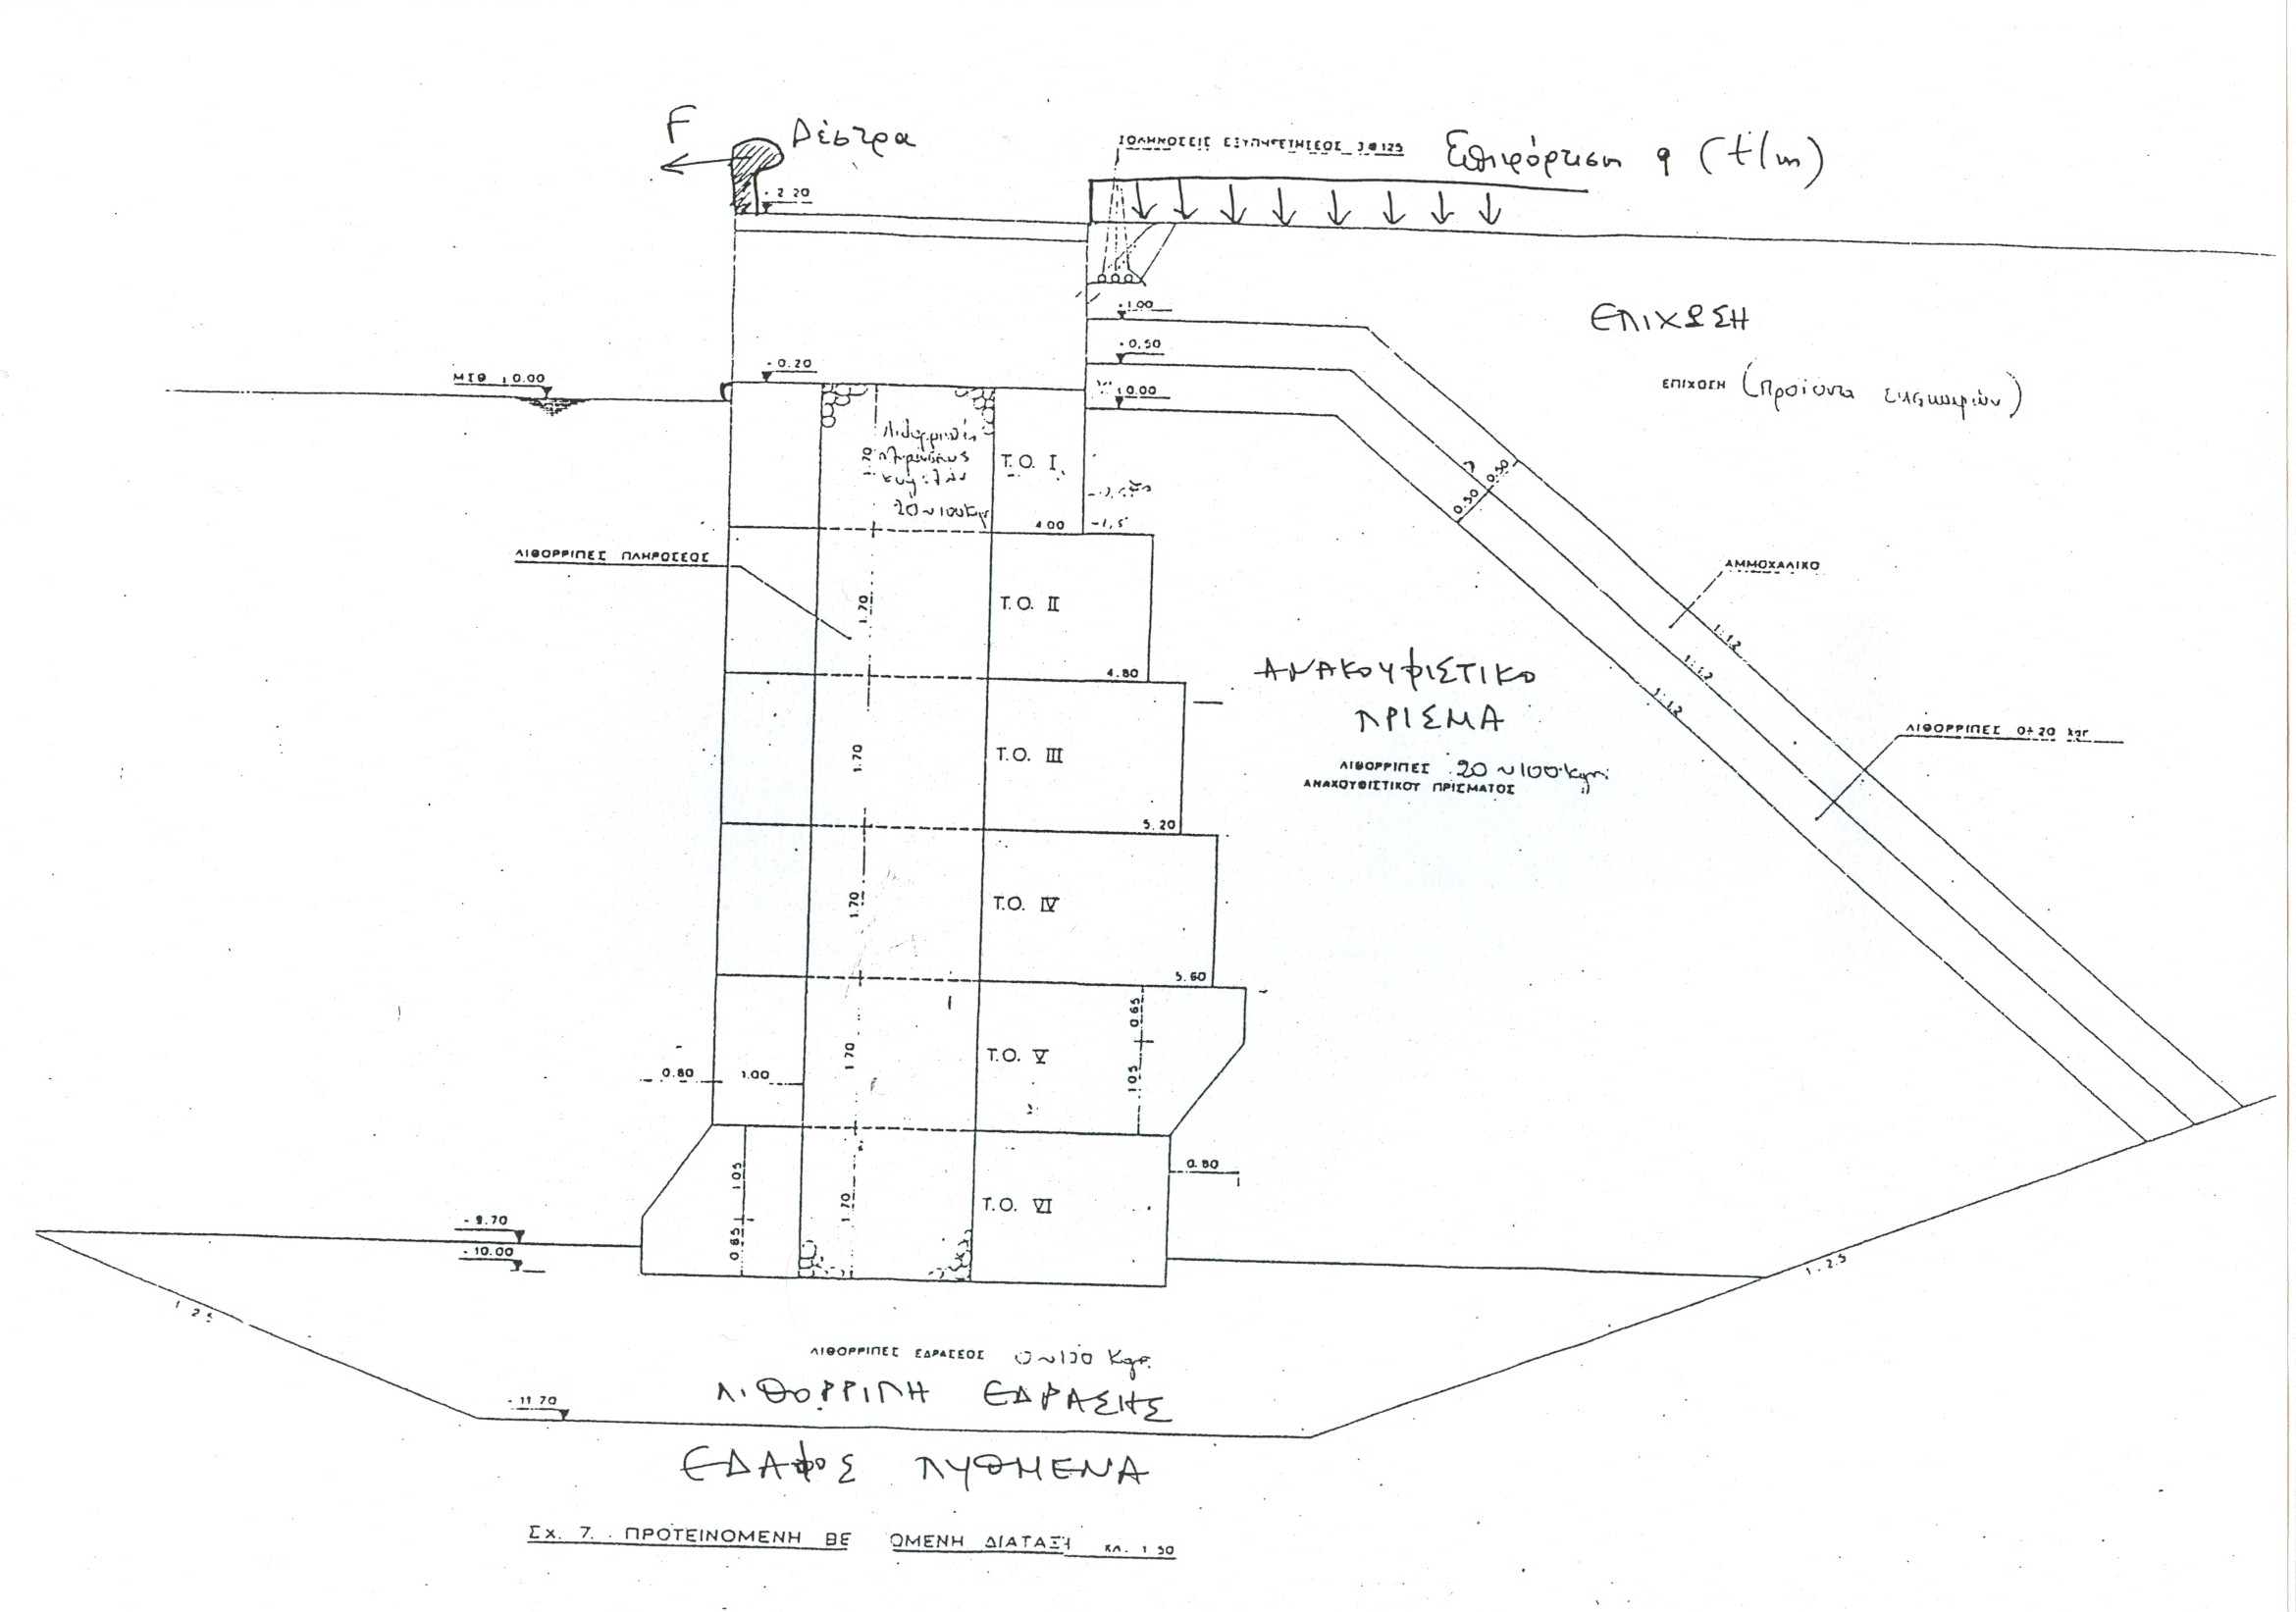 F
Δέστρα
ΣΩΛΗΝΩΣΕΙΣ ΕΞΥΠΗΡΕΤΗΣΕΩΣ 3Φ125
Επιφόρτιση q (t/m)
+2.20
+1.00
ΕΠΙΧΩΣΗ
+0.50
ΜΣΘ ±0.00
+0.20
±0.00
ΕΠΙΧΩΣΗ (Προϊόντα εκσκαφών)
Λιθορριπή
πληρώσεως
κυψελών
20~100kgr
1.70
Τ.Ο. I
0.50
0.50
4.00
-1,5
ΛΙΘΟΡΡΙΠΕΣ ΠΛΗΡΩΣΕΩΣ
ΑΜΜΟΧΑΛΙΚΟ
1.70
Τ.Ο. II
1:1.2
1:1.2
1:1.2
4.80
ΑΝΑΚΟΥΦΙΣΤΙΚΟ
ΠΡΙΣΜΑ
ΛΙΘΟΡΡΙΠΕΣ 0÷20 kgr
1.70
Τ.Ο. III
ΛΙΘΟΡΡΙΠΕΣ 20~100 kgr
ΑΝΑΚΟΥΦΙΣΤΙΚΟΥ ΠΡΙΣΜΑΤΟΣ
5.20
1.70
Τ.Ο. IV
5.60
0.65
1.70
Τ.Ο. V
1.05
0.80
1.00
0.80
1.05
1.70
Τ.Ο. VI
0.65
-9.70
-10.00
1:2.5
1:2.5
ΛΙΘΟΡΡΙΠΕΣ ΕΔΡΑΣΕΩΣ 0~100 Kgr.
ΛΙΘΟΡΡΙΠΗ ΕΔΡΑΣΗΣ
-11.70
ΕΔΑΦΟΣ ΠΥΘΜΕΝΑ
Σχ. 7. ΠΡΟΤΕΙΝΟΜΕΝΗ ΒΕ ΩΜΕΝΗ ΔΙΑΤΑΞΗ ΚΛ. 1:50